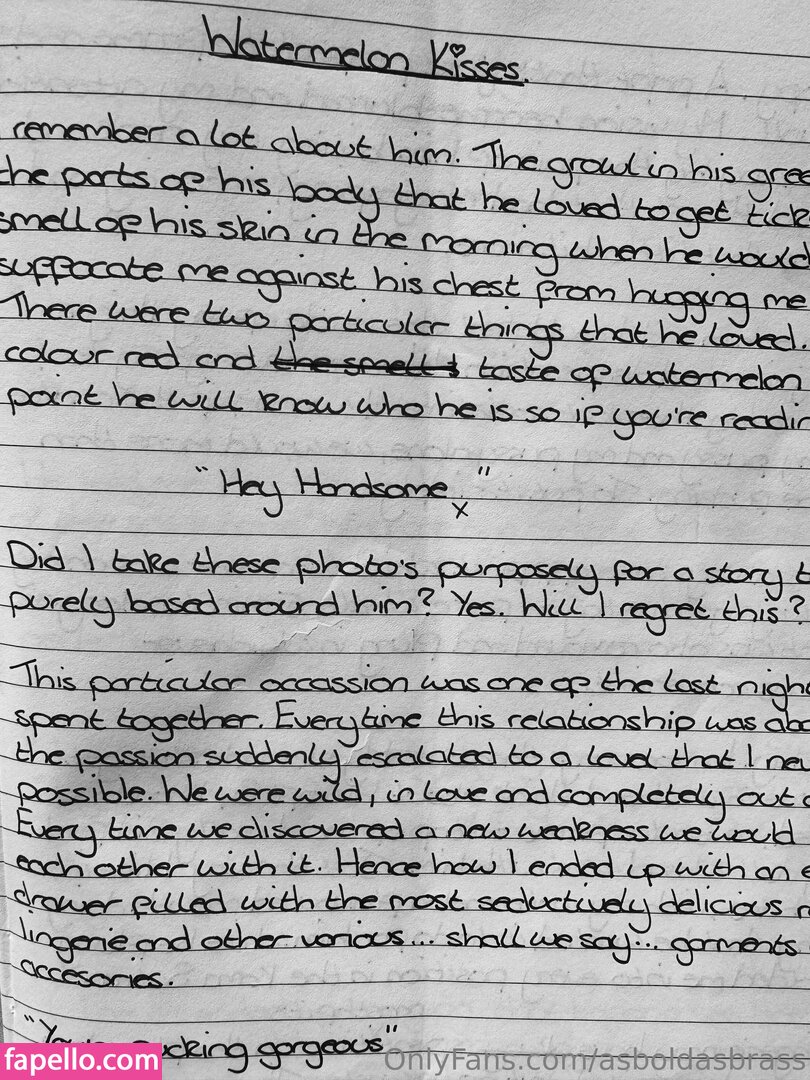 Watermelon Kisses.
remember a lot about him. The growl in his
the parts of his body that he loved to get
smell of his skin in the morning when he would
suffocate me against his chest from hugging me
There were two particular things that he loved.
colour red and the smell taste of watermelon
point he will know who he is so if you're
"Hey Handsome x"
Did I take these photo's purposely for a story
purely based around him? Yes. Will I regret this?
This particular occassion was one of the last
spent together. Everytime this relationship was
the passion suddenly escalated to a level that I
possible. We were wild, in love and completely out
Every time we discovered a new weakness we would
each other with it. Hence how I ended up with an
drawer filled with the most seductively delicious
lingerie and other various... shall we say... garments
accesories.
gorgeous"
fapello.com
OnlyFans.com/asboldasbrass